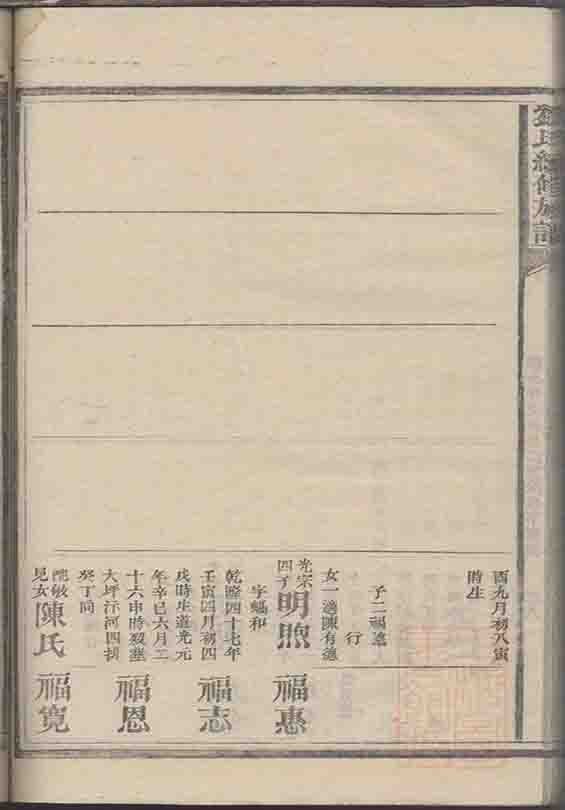 酉九月初八寅
時生
子二福遠
行
女一適陳有德
光宗
四子
明煦
字蝠和
乾隆四十七年
壬寅四月初四
戌時生道光元
年辛巳六月二
十六申時歿塟
大坪汙河四
癸丁向
見女
陳氏
福惠
福志
福恩
福寬